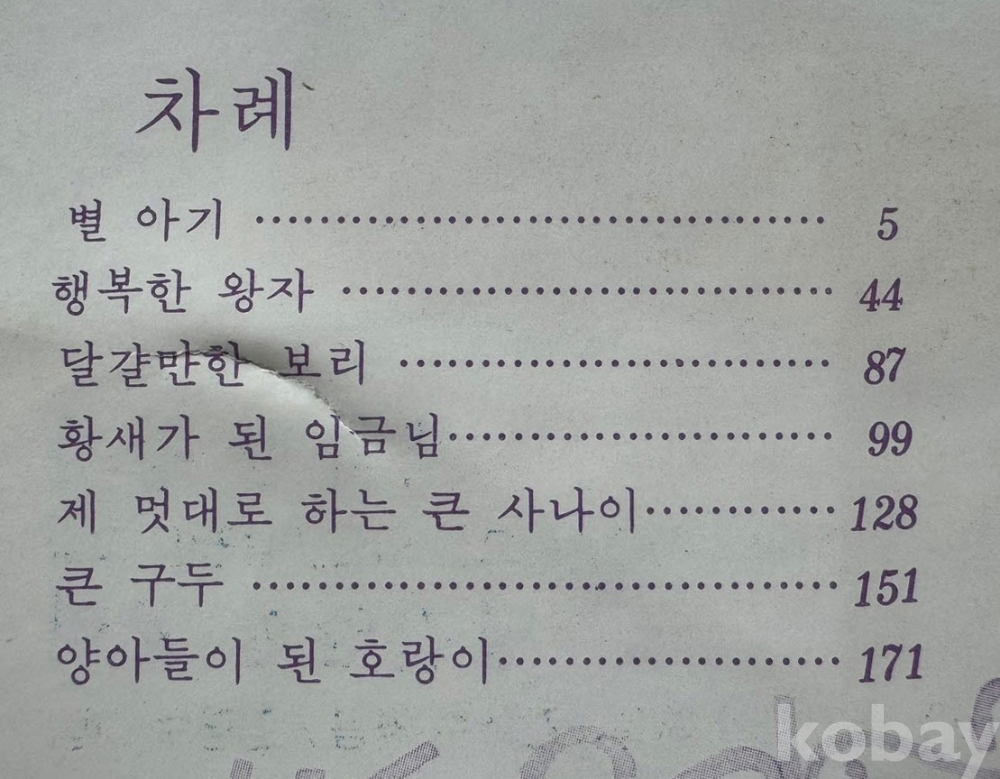 차례
별 아기 ………………………………… 5
행복한 왕자 ………………………………… 44
달걀만한 보리 ………………………………… 87
황새가 된 임금님………………………………… 99
제 멋대로 하는 큰 사나이………………… 128
큰 구두 ………………………………… 151
양아들이 된 호랑이………………………… 171
kobay